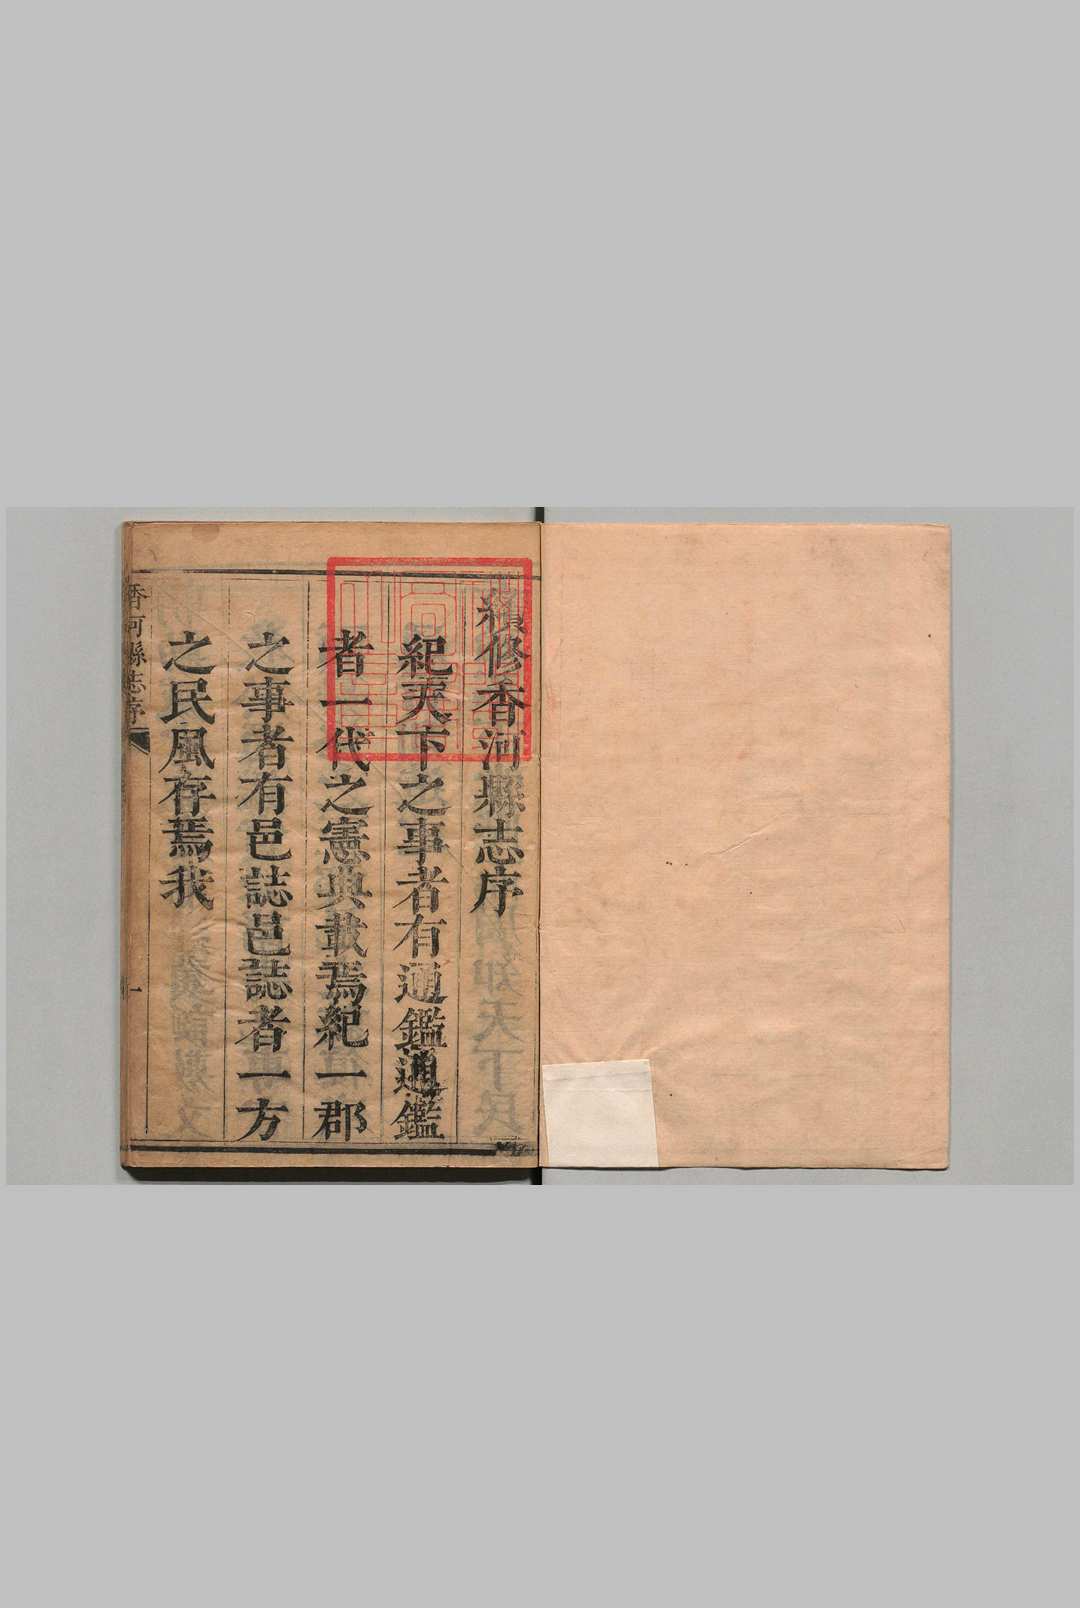 續修香河縣志序
紀天下之事者有通鑑通鑑
者一代之憲典載焉紀一郡
之事者有邑誌邑誌者一方
之民風存焉我
香河縣志序
一